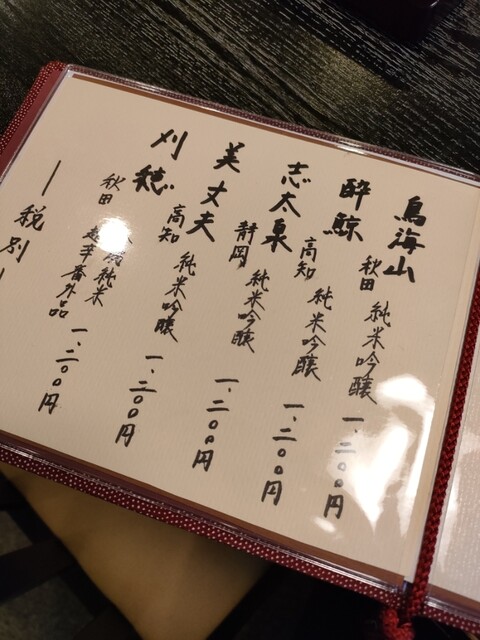 鳥海山 秋田 純米吟醸 一、二〇〇円
酔鯨 高知 純米吟醸 一、二〇〇円
志太泉 静岡 純米吟醸 一、二〇〇円
美丈夫 高知 純米吟醸 一、二〇〇円
刈穂 秋田 純米 超辛番外品 一、二〇〇円
ー税別ー